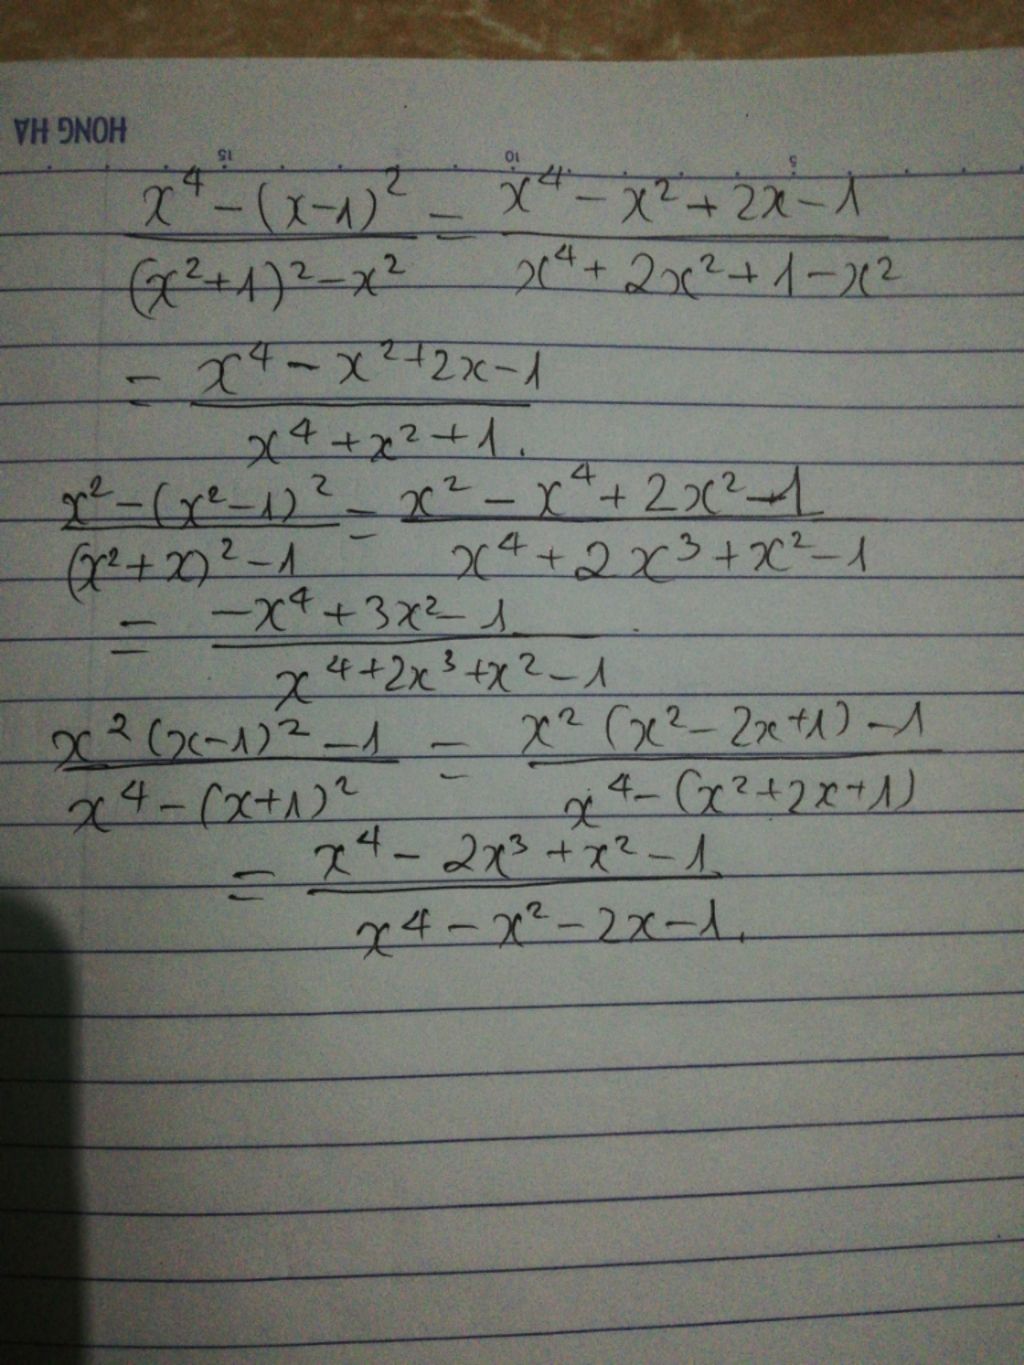 HONG HA
15 10 5
\frac{x^4-(x-1)^2}{(x^2+1)^2-x^2} = \frac{x^4-x^2+2x-1}{x^4+2x^2+1-x^2}
= \frac{x^4-x^2+2x-1}{x^4+x^2+1}.
\frac{x^2-(x^2-1)^2}{(x^2+x)^2-1} = \frac{x^2-x^4+2x^2-1}{x^4+2x^3+x^2-1}
= \frac{-x^4+3x^2-1}{x^4+2x^3+x^2-1}
\frac{x^2(x-1)^2-1}{x^4-(x+1)^2} = \frac{x^2(x^2-2x+1)-1}{x^4-(x^2+2x+1)}
= \frac{x^4-2x^3+x^2-1}{x^4-x^2-2x-1}.